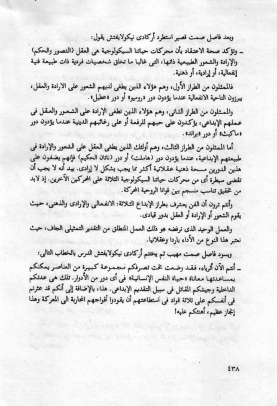 وبعد فاصل صمت قصير استطرد أركادى نيكولايفتش يقول:
– وتؤكد صحة الاعتقاد بأن محركات حياتنا السيكولوجية هى العقل (التصور والحكم)
والإرادة والشعور الطبيعية ذاتها، التى غالبا ما تخلق شخصيات فردية ذات طبيعة فنية
إنفعالية، أو إرادية، أو ذهنية.
فالممثلون من الطراز الأول، وهم هؤلاء الذين يطغى لديهم الشعور على الإرادة والعقل،
يبرزون الناحية الانفعالية عندما يؤدون دور «روميو» أو دور «عطيل».
والممثلون من الطراز الثانى، وهم هؤلاء الذين تطغى الإرادة على الشعور والعقل فى
عملهم الإبداعى، يؤكدون على حبهم للرفعة أو على رغباتهم الدينية عندما يؤدون دور
«ماكبث» أو دور «براند».
أما الممثلون من الطراز الثالث، وهم أولئك الذين يطغى العقل على الشعور والإرادة فى
طبيعتهم الإبداعية، عندما يؤدون دور (هاملت) أو دور (ناتان الحكيم) فإنهم يضفون على
هذين الدورين مسحة ذهنية عقلانية أكثر مما يجب بشكل لا إرادى. بيد أنه لا يجب أن
تقضى سيطرة أى من محركات حياتنا السيكولوجية الثلاثة على المحركين الآخرين. إذ لابد
من تحقيق تناسب منسجم بين قوانا الروحية المحركة.
وأنتم ترون أن الفن يعترف بطراز الإبداع الثلاثة: الانفعالى والإرادى والذهنى، حيث
يقوم الشعور أو الإرادة أو العقل بدور قيادى.
والعمل الوحيد الذى نرفضه هو ذلك العمل المنطلق من التقدير التمثيلى الجاف، حيث
نعتبر هذا النوع من الأداء باردا وعقلانيا.
ويسود فاصل صمت مهيب ثم يختتم أركادى نيكولايفتش الدرس بالخطاب التالى:
– أنتم الآن أثرياء، فقد وضعت تحت تصرفكم مجموعة كبيرة من العناصر يمكنكم
بمساعدتها معاناة «حياة النفس الإنسانية» فى أى دور من الأدوار. تلك هى عدتكم
الداخلية وجيشكم المقاتل فى سبيل التقديم الإبداعى. هذا، بالإضافة إلى أنكم قد عثرتم
فى أنفسكم على ثلاثة قواد فى استطاعتهم أن يقودوا أفواجهم المحاربة الى المعركة وهذا
إنجاز عظيم، أهنئكم عليه!
٤٣٨